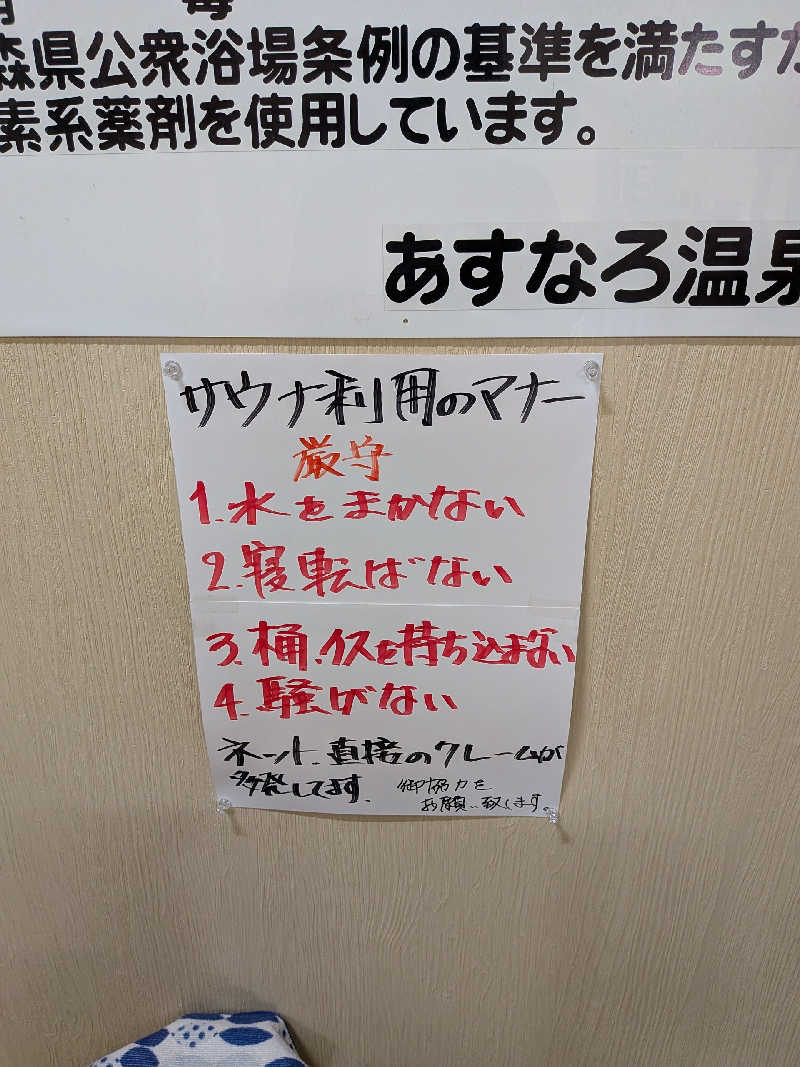 毎
森県公衆浴場条例の基準を満たすた
素系薬剤を使用しています。
あすなろ温泉
サウナ利用のマナー
厳守
1.水をまかない
2.寝転ばない
3.桶、イスを持ち込まない
4.騒がない
ネット、直接のクレームが
多発してます.
御協力を
お願い致します。